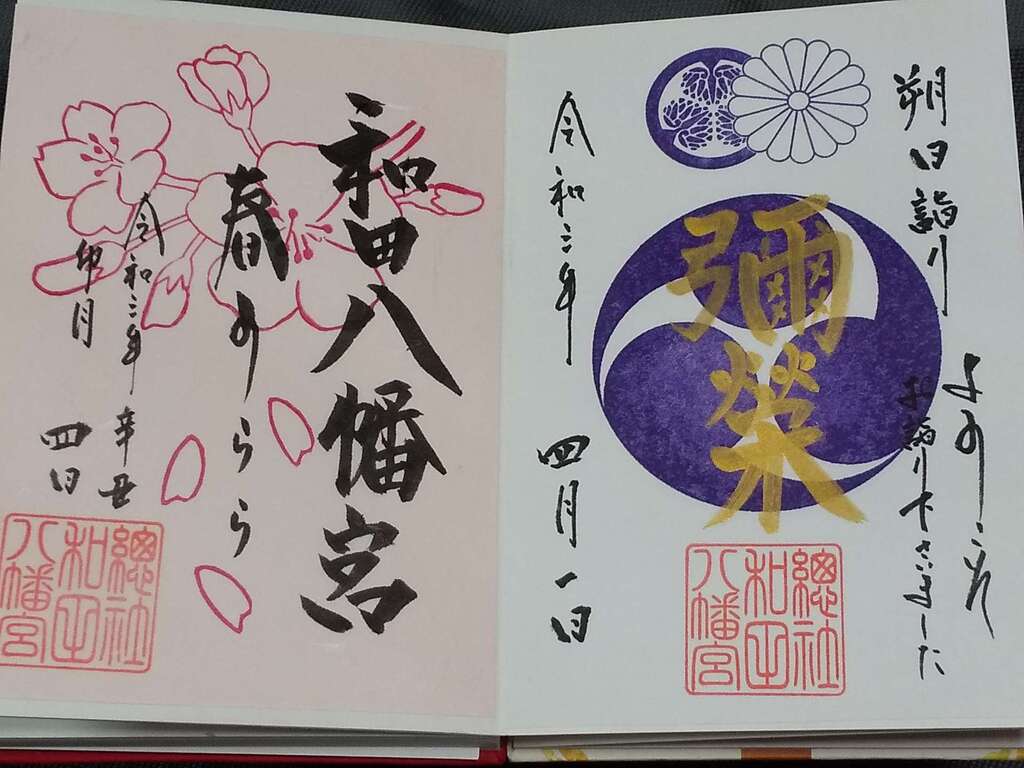 朔日詣り
ようこそ
お詣り下さいました
彌榮
令和三年 四月一日
總社
和田
八幡宮
和田八幡宮
春うらら
令和三年 辛丑
卯月 四日
總社
和田
八幡宮